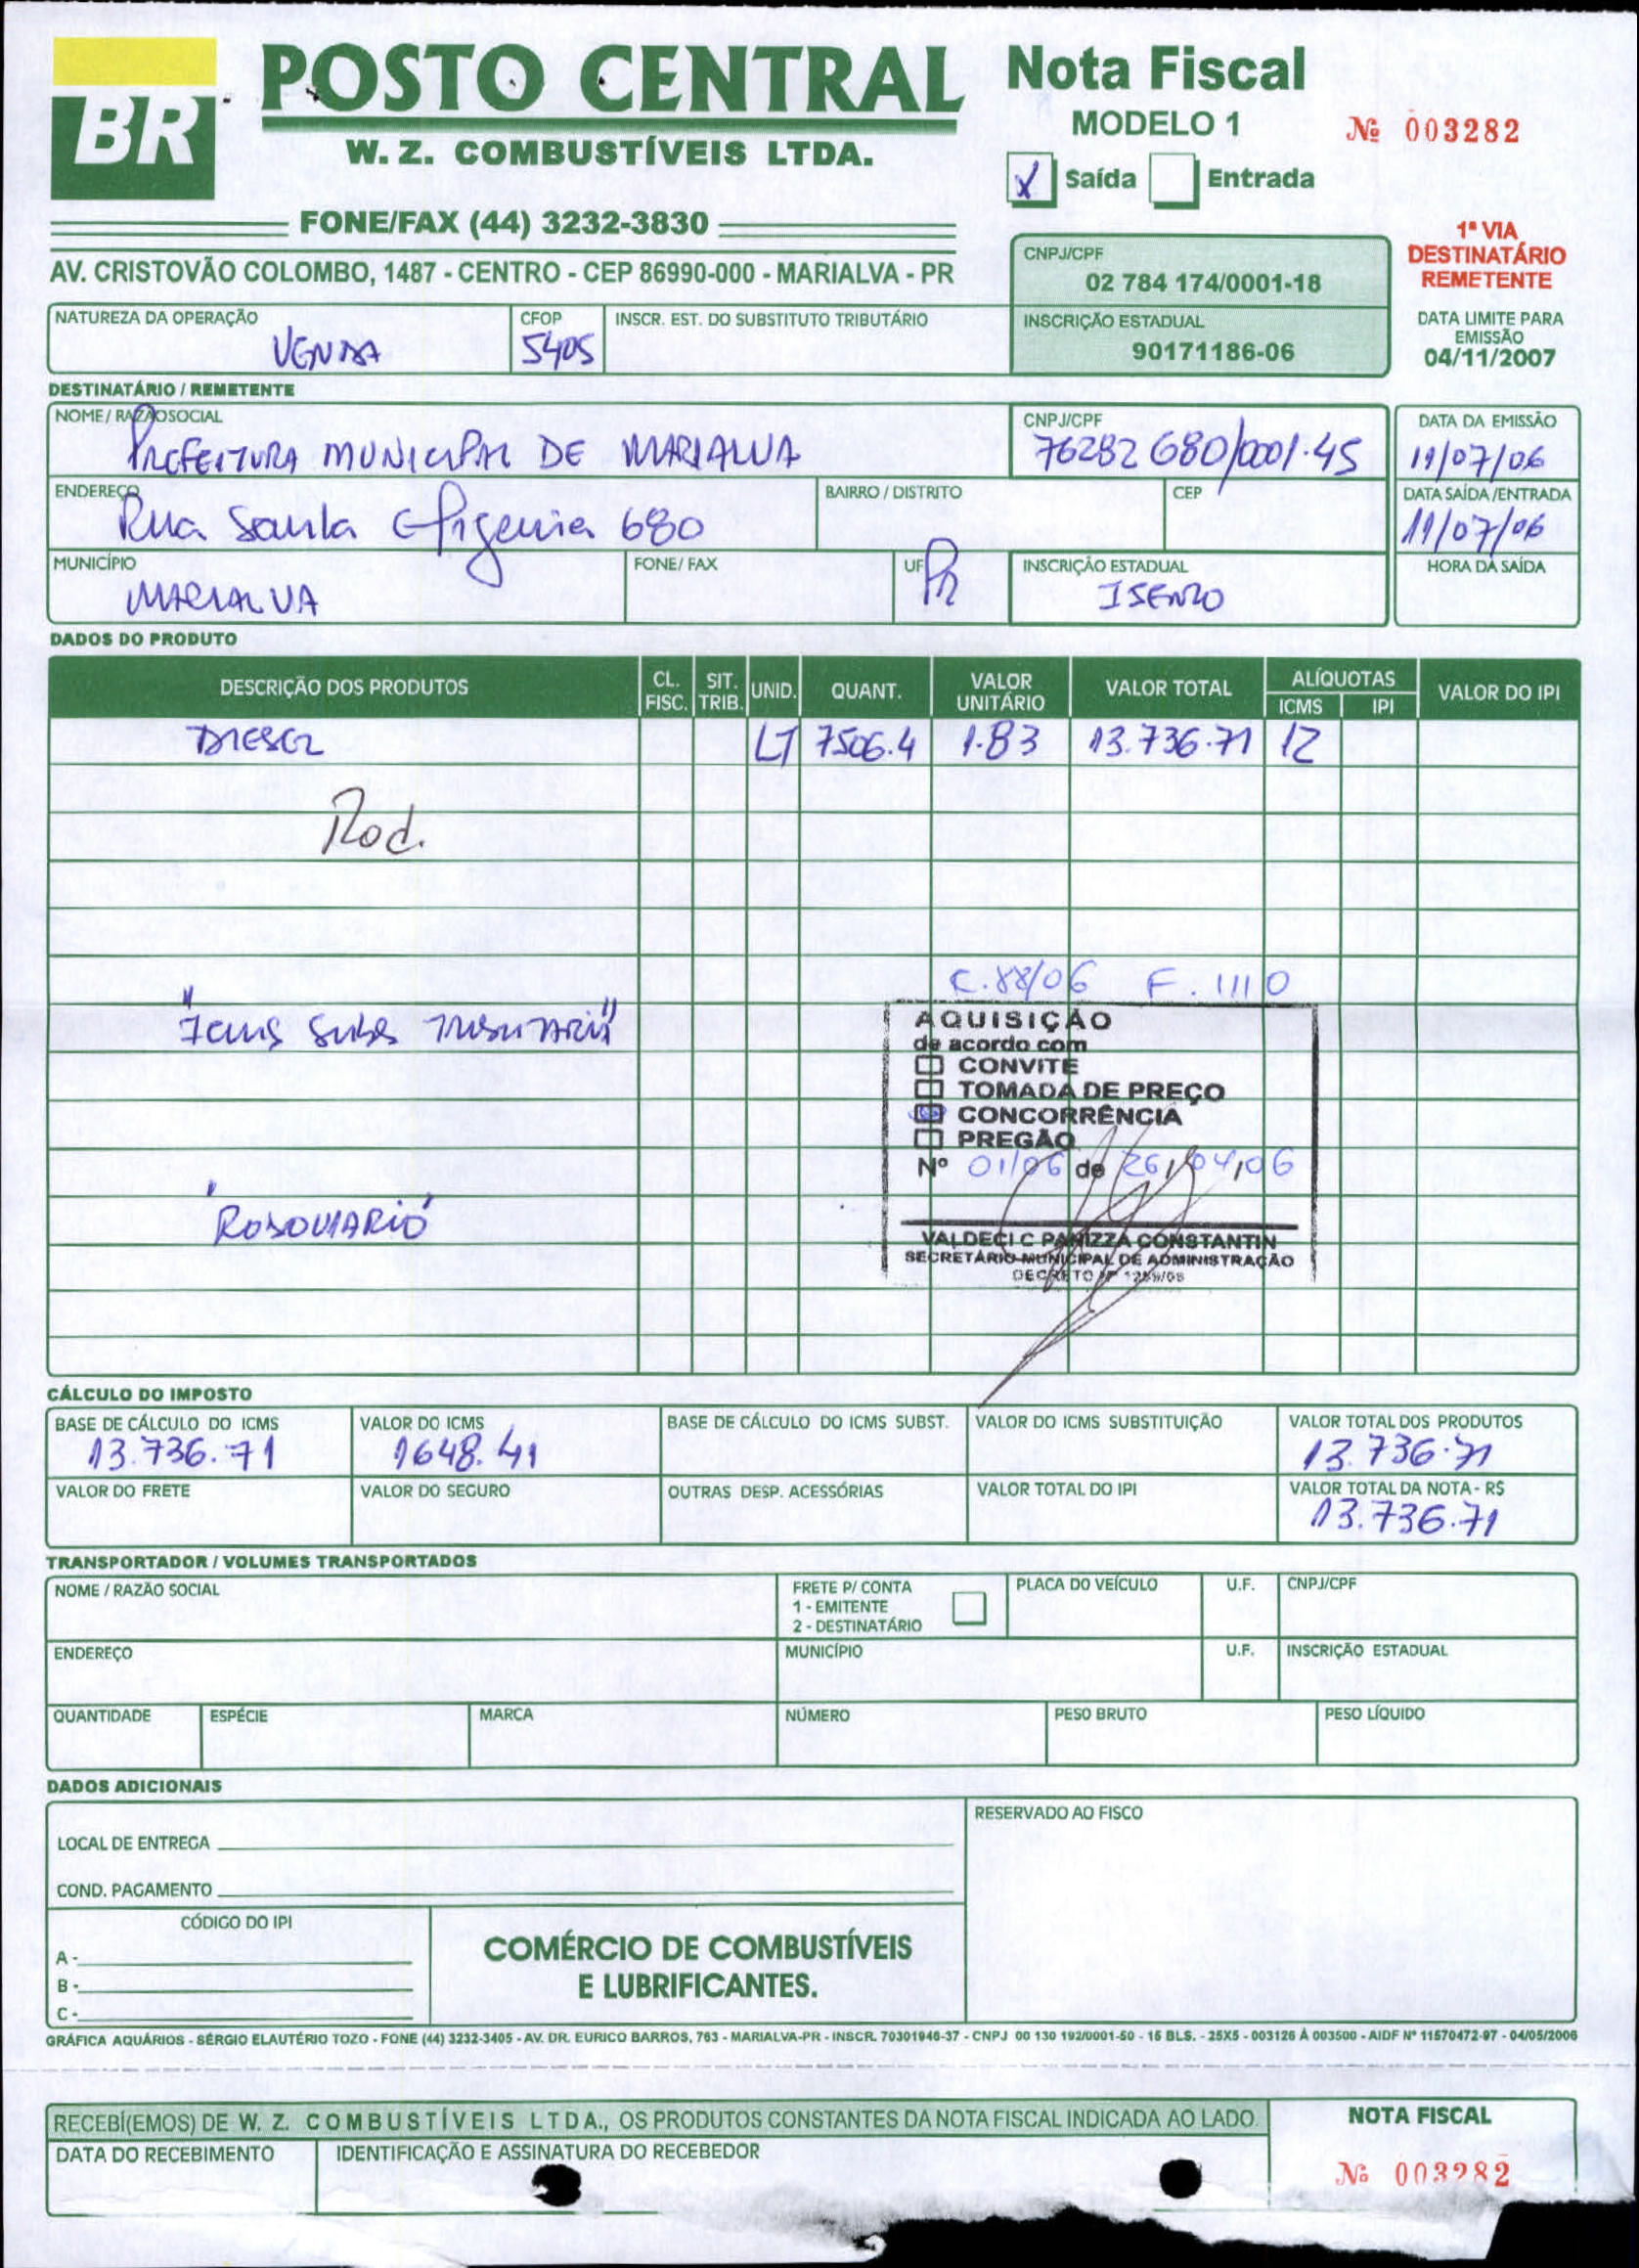 BR
POSTO CENTRAL
W. Z. COMBUSTÍVEIS LTDA.
FONE/FAX (44) 3232-3830
AV. CRISTOVÃO COLOMBO, 1487 - CENTRO - CEP 86990-000 - MARIALVA - PR
Nota Fiscal
MODELO 1
Nº 003282
X Saída Entrada
1ª VIA
DESTINATÁRIO
REMETENTE
CNPJ/CPF
02 784 174/0001-18
INSCRIÇÃO ESTADUAL
90171186-06
DATA LIMITE PARA
EMISSÃO
04/11/2007
NATUREZA DA OPERAÇÃO CFOP INSCR. EST. DO SUBSTITUTO TRIBUTÁRIO
VENDA 5405
DESTINATÁRIO / REMETENTE
NOME / RAZÃO SOCIAL CNPJ/CPF DATA DA EMISSÃO
PREFEITURA MUNICIPAL DE MARIALVA 76282 680/0001.45 11/07/06
ENDEREÇO BAIRRO / DISTRITO CEP DATA SAÍDA/ENTRADA
Rua Santa Efigenia 680 11/07/06
MUNICÍPIO FONE/ FAX UF INSCRIÇÃO ESTADUAL HORA DA SAÍDA
MARIALVA PR ISENTO
DADOS DO PRODUTO
DESCRIÇÃO DOS PRODUTOS CL. FISC. SIT. TRIB. UNID. QUANT. VALOR UNITÁRIO VALOR TOTAL ALÍQUOTAS ICMS IPI VALOR DO IPI
DIESEL LT 7506.4 1.83 13.736.71 12
Rod.
C.88/06 F. 1110
"Icms Subs Tributario"
AQUISIÇÃO
de acordo com
CONVITE
TOMADA DE PREÇO
CONCORRÊNCIA
PREGÃO
Nº 01/06 de 26/04/06
"RODOVIARIO"
VALDECI C PANIZZA CONSTANTIN
SECRETÁRIO MUNICIPAL DE ADMINISTRAÇÃO
CÁLCULO DO IMPOSTO
BASE DE CÁLCULO DO ICMS VALOR DO ICMS BASE DE CÁLCULO DO ICMS SUBST. VALOR DO ICMS SUBSTITUIÇÃO VALOR TOTAL DOS PRODUTOS
13.736.71 1648.41 13.736.71
VALOR DO FRETE VALOR DO SEGURO OUTRAS DESP. ACESSÓRIAS VALOR TOTAL DO IPI VALOR TOTAL DA NOTA - R$
13.736.71
TRANSPORTADOR / VOLUMES TRANSPORTADOS
NOME / RAZÃO SOCIAL FRETE P/ CONTA PLACA DO VEÍCULO U.F. CNPJ/CPF
1 - EMITENTE
2 - DESTINATÁRIO
ENDEREÇO MUNICÍPIO U.F. INSCRIÇÃO ESTADUAL
QUANTIDADE ESPÉCIE MARCA NÚMERO PESO BRUTO PESO LÍQUIDO
DADOS ADICIONAIS
RESERVADO AO FISCO
LOCAL DE ENTREGA
COND. PAGAMENTO
CÓDIGO DO IPI
A -
B -
C -
COMÉRCIO DE COMBUSTÍVEIS
E LUBRIFICANTES.
GRÁFICA AQUÁRIOS - SÉRGIO ELAUTÉRIO TOZO - FONE (44) 3232-3405 - AV. DR. EURICO BARROS, 763 - MARIALVA-PR - INSCR. 70301946-37 - CNPJ 00 130 192/0001-50 - 15 BLS. - 25X5 - 003126 À 003500 - AIDF Nº 11570472-97 - 04/05/2006
RECEBI(EMOS) DE W. Z. COMBUSTÍVEIS LTDA., OS PRODUTOS CONSTANTES DA NOTA FISCAL INDICADA AO LADO.
NOTA FISCAL
DATA DO RECEBIMENTO IDENTIFICAÇÃO E ASSINATURA DO RECEBEDOR
Nº 003282